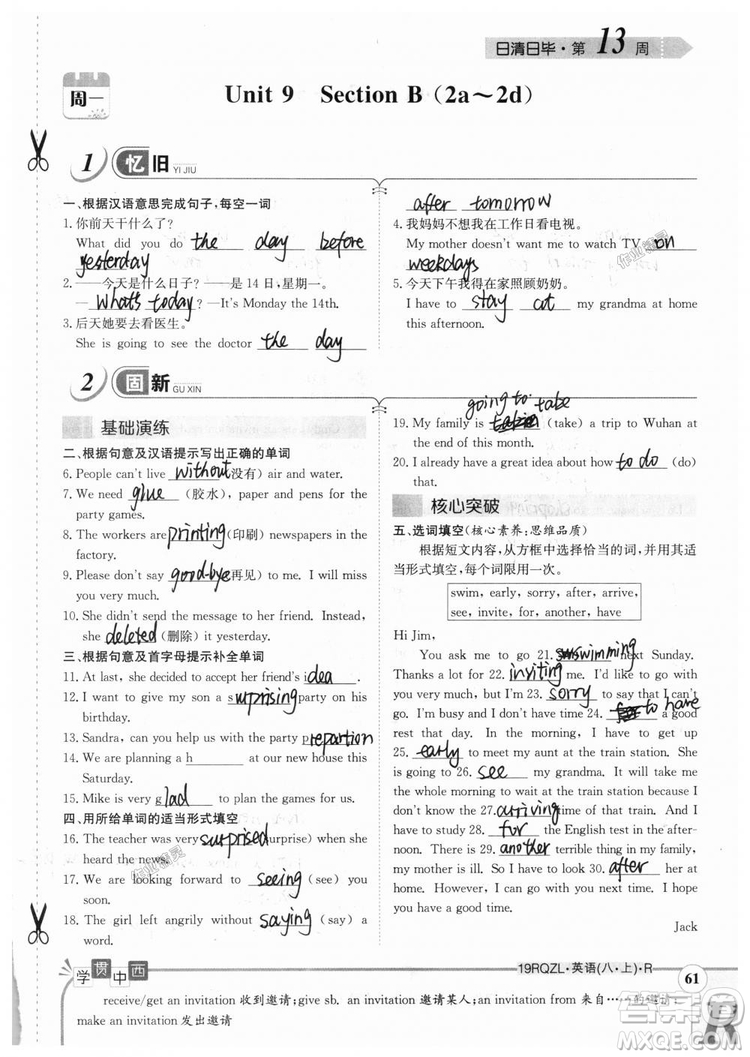 日清日毕·第13周
周一
Unit 9 Section B（2a～2d）
1 忆旧 YI JIU
一、根据汉语意思完成句子，每空一词
1. 你前天干什么了？
What did you do the day before
yesterday
2. ——今天是什么日子？——是 14 日，星期一。
- What's today? —It's Monday the 14th.
3. 后天她要去看医生。
She is going to see the doctor the day
after tomorrow
4. 我妈妈不想我在工作日看电视。
My mother doesn't want me to watch TV on
weekdays
5. 今天下午我得在家照顾奶奶。
I have to stay cat my grandma at home
this afternoon.
2 固新 GU XIN
基础演练
二、根据句意及汉语提示写出正确的单词
6. People can't live without(没有) air and water.
7. We need glue (胶水), paper and pens for the
party games.
8. The workers are printing(印刷) newspapers in the
factory.
9. Please don't say good-bye(再见) to me. I will miss
you very much.
10. She didn't send the message to her friend. Instead,
she deleted (删除) it yesterday.
三、根据句意及首字母提示补全单词
11. At last, she decided to accept her friend's idea.
12. I want to give my son a surprising party on his
birthday.
13. Sandra, can you help us with the party prepartion
14. We are planning a h at our new house this
Saturday.
15. Mike is very glad to plan the games for the party.
四、用所给单词的适当形式填空
16. The teacher was very surprised(surprise) when he
heard the news.
17. We are looking forward to seeing (see) you
soon.
18. The girl left angrily without saying (say) a
word.
going to take
19. My family is (take) a trip to Wuhan at
the end of this month.
20. I already have a great idea about how to do (do)
that.
核心突破
五、选词填空（核心素养：思维品质）
根据短文内容，从方框中选择恰当的词，并用其适
当形式填空，每个词限用一次。
swim, early, sorry, after, arrive,
see, invite, for, another, have
Hi Jim,
You ask me to go 21. swimming next Sunday.
Thanks a lot for 22. inviting me. I'd like to go with
you very much, but I'm 23. sorry to say that I can't
go. I'm busy and I don't have time 24. to have a good
rest that day. In the morning, I have to get up
25. early to meet my aunt at the train station. She
is going to 26. see my grandma. It will take me
about one hour and a half to wait at the train station
because I don't know her 27. arriving time of her train. I
have to study 28. for the English test in the after-
noon. There is 29. another terrible thing in my family,
my mother is ill. So I have to look 30. after her at
home.
Jack
学贯中西
19RQZL·英语(八·上)·R
61
receive/get an invitation 收到邀请; give sb. an invitation 邀请某人; an invitation from 来自……的邀请;
make an invitation 发出邀请